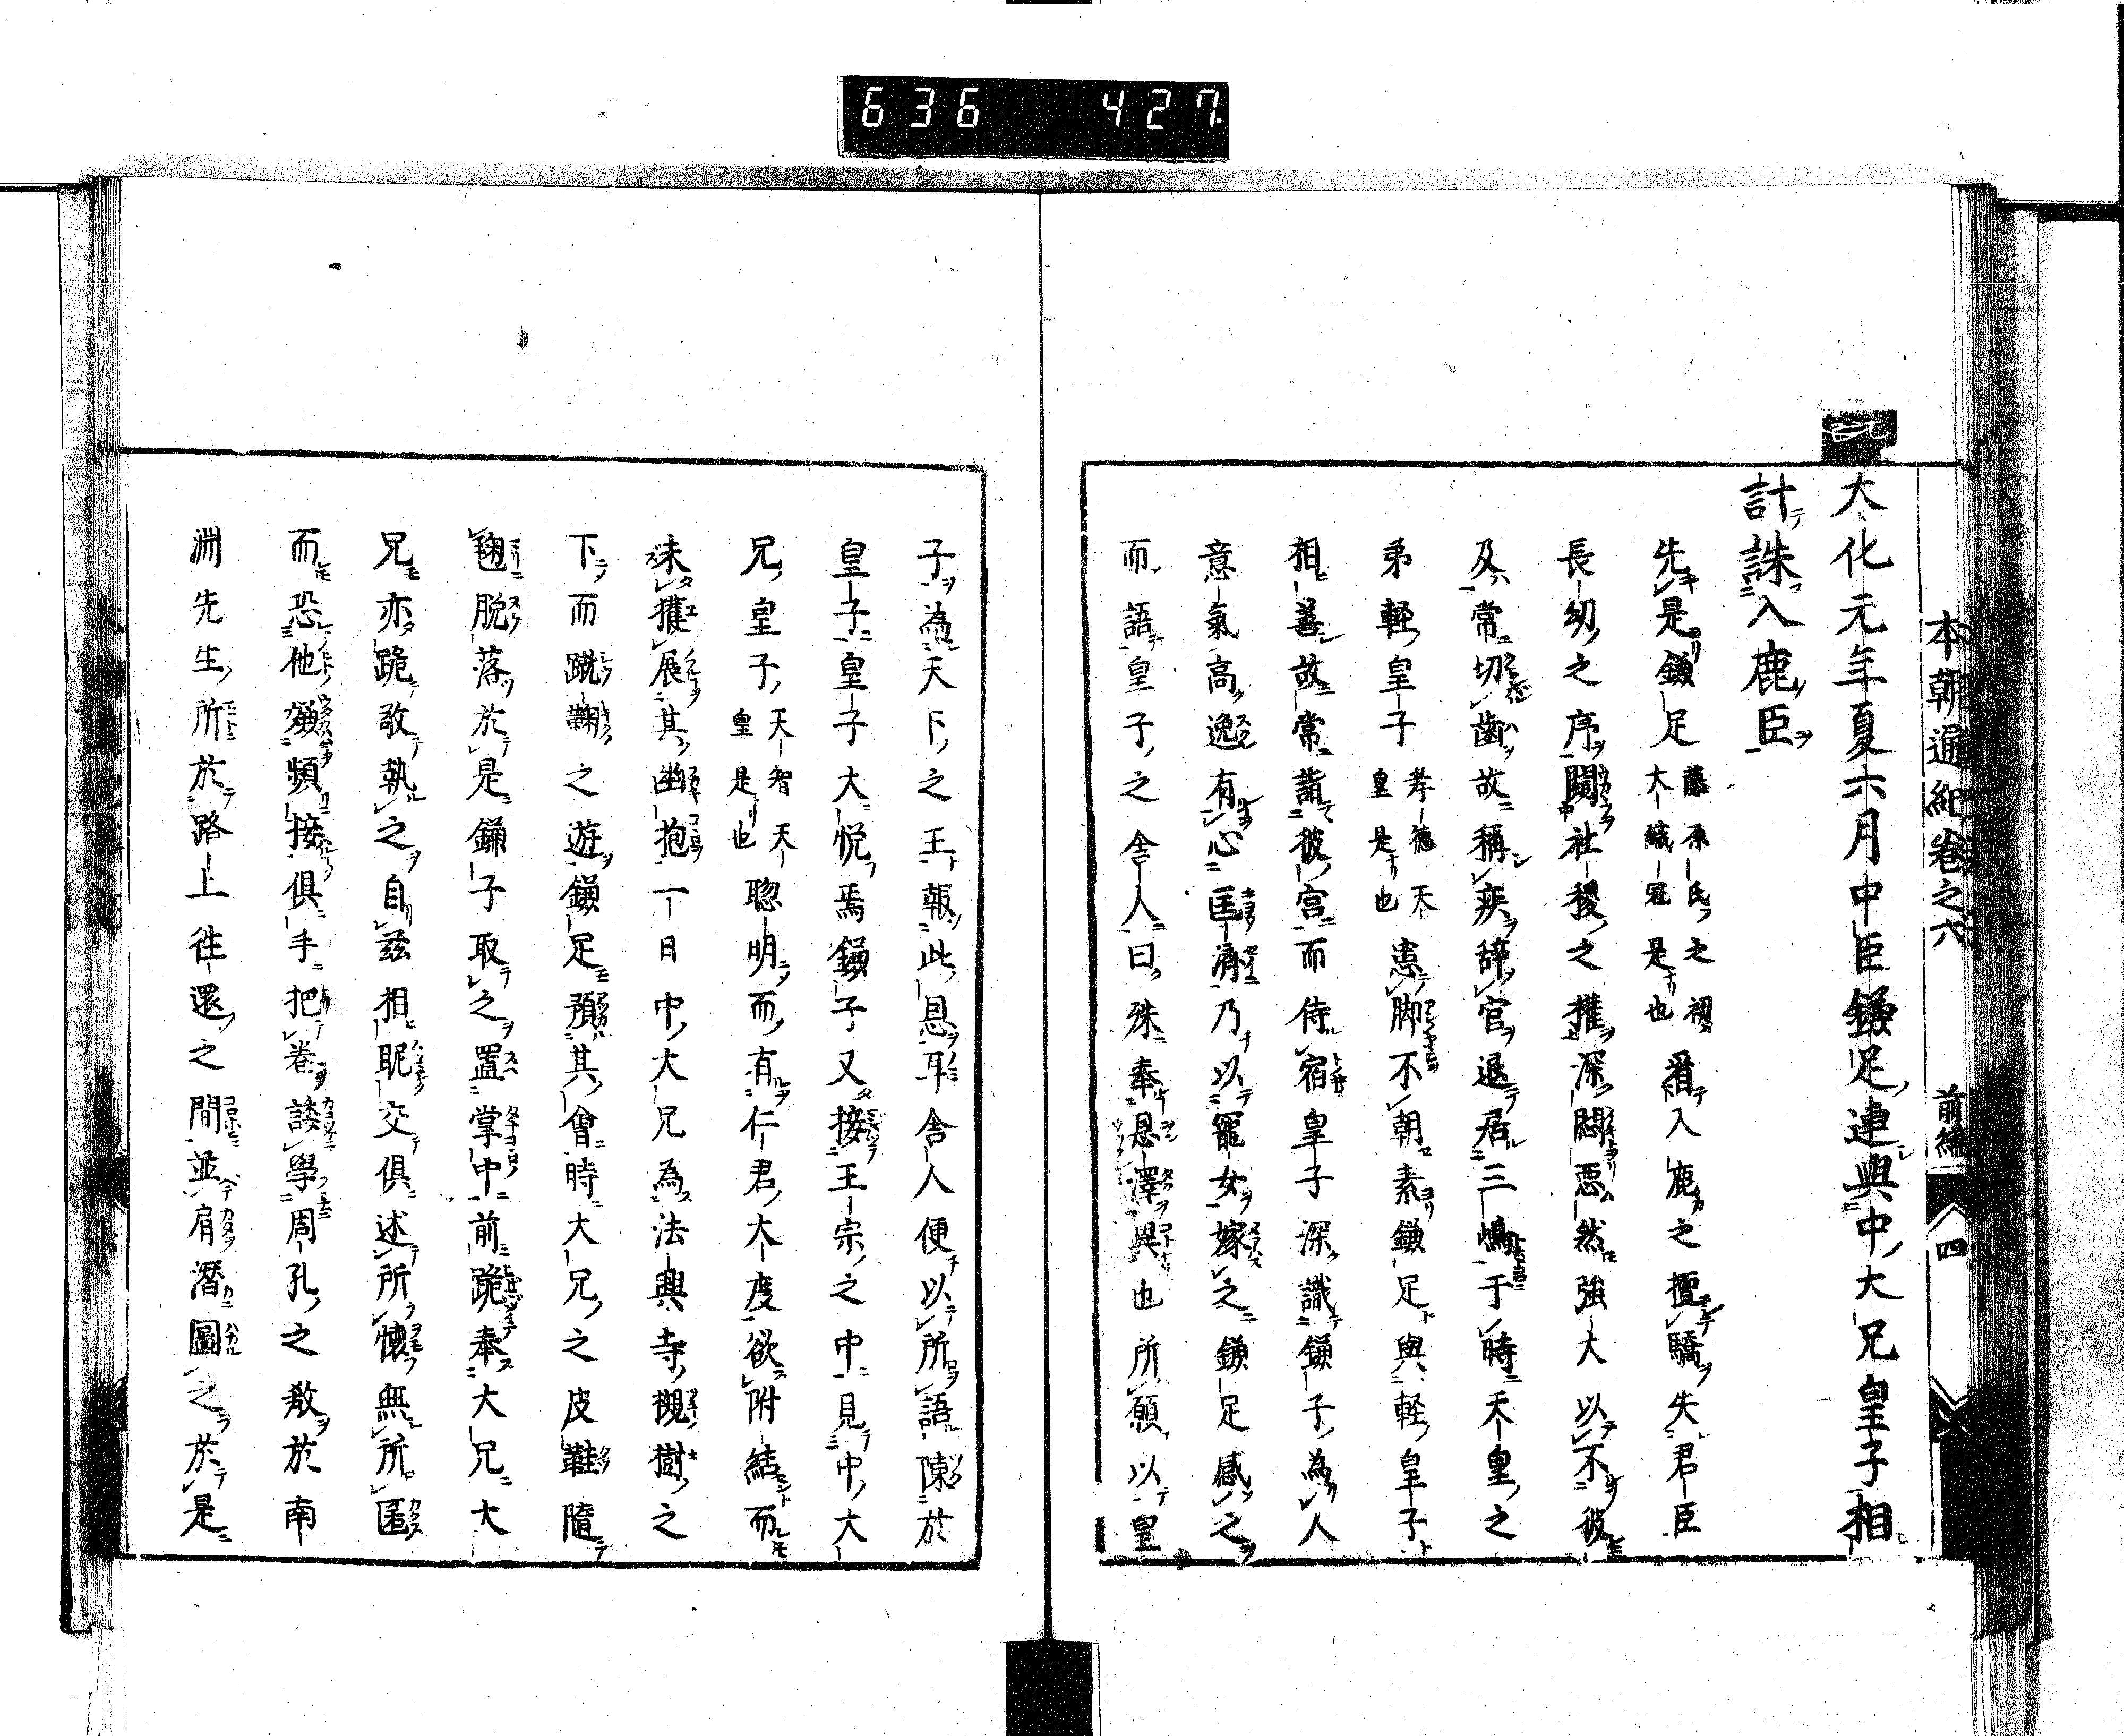 636 427.
本朝通紀卷之六 前編 四
大化元年夏六月中臣鎌足連與中大兄皇子相
計誅入鹿臣
先是鎌足藤原氏之祖大織冠是也看入鹿之擅驕失君臣
長幼之序闚社稷之權深悶惡然強大以不彼
及常切歯故稱疾辞官退居三嶋于時天皇之
弟軽皇子孝德天皇是也患脚不朝素鎌足與軽皇子
相善故常詣彼宮而侍宿皇子深識鎌子為人
意氣高逸有心匡濟乃以寵女嫁之鎌足感之
而語皇子之舎人曰殊奉恩澤與也所願以皇
子為天下之王報此恩耳舎人便以所語陳於
皇子皇子大悦焉鎌子又接王宗之中見中大
兄皇子天智天皇是也聡明而有仁君大度欲附結而
未獲展其幽抱一日中大兄為法興寺槻樹之
下而蹴鞠之遊鎌足預其會時大兄之皮鞋隨
鞠脱落於是鎌子取之置掌中前跪奉大兄大
兄亦跪敬執之自茲相昵交俱述所懷無所匿
而恐他嫌頻接俱手把卷談學周孔之教於南
淵先生所於路上往還之間並肩潛圖之於是